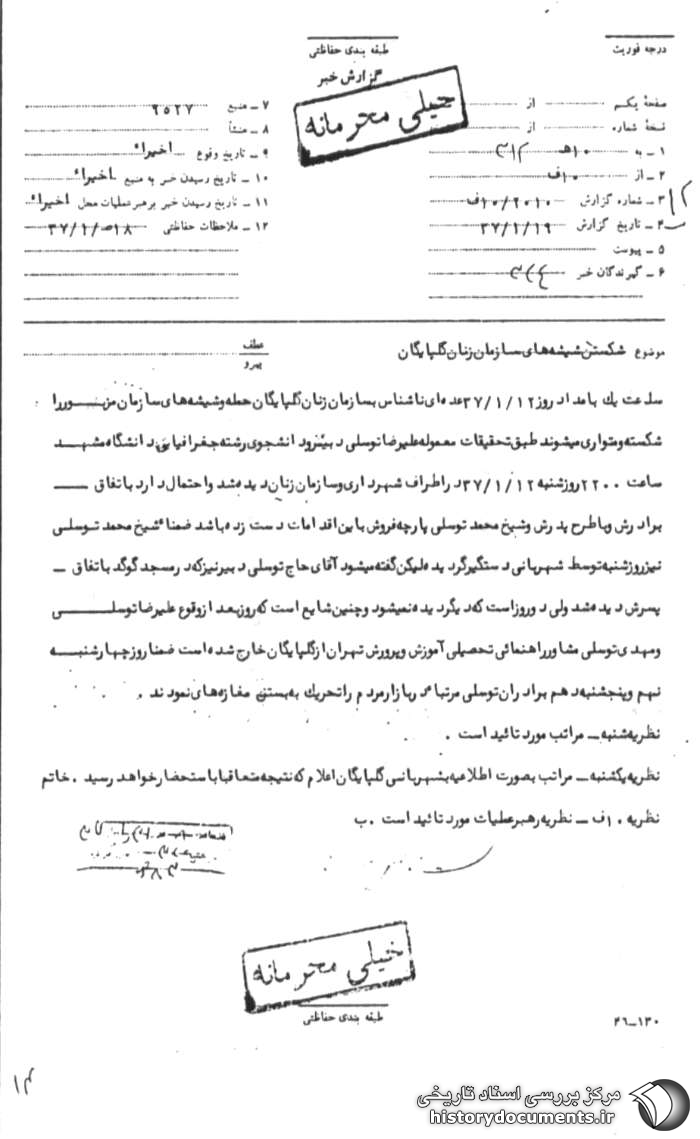 درجه فوریت
طبقه بندی حفاظتی
گزارش خبر
خیلی محرمانه
صفحهٔ یکم از
نسخهٔ شماره از
۱ ـ به ۱۰هـ ۳۱۲
۲ ـ از ۱۰ف
۳ ـ شماره گزارش ۱۰/۲۰۱۰ف
۴ ـ تاریخ گزارش ۳۷/۱/۱۹
۵ ـ پیوست
۶ ـ گیرندگان خبر
۷ ـ منبع ۹۵۲۷
۸ ـ منشأ
۹ ـ تاریخ وقوع اخیراً
۱۰ ـ تاریخ رسیدن خبر به منبع اخیراً
۱۱ ـ تاریخ رسیدن خبر برهبر عملیات محل اخیراً
۱۲ ـ ملاحظات حفاظتی ۳۷/۱/۱۸
موضوع شکستن شیشه های سازمان زنان گلپایگان
عطف
پیرو
ساعت یک بامداد روز ۳۷/۱/۱۲ عده ای ناشناس بسازمان زنان گلپایگان حمله و شیشه های سازمان مزبور را
شکسته و متواری میشوند طبق تحقیقات معموله علیرضا توسلی دبیر و دانشجوی رشته جغرافیایی دانشگاه مشهد
ساعت ۲۲۰۰ روز شنبه ۳۷/۱/۱۲ در اطراف شهرداری و سازمان زنان دیده شد و احتمال دارد باتفاق ـــ
برادرش و با طرح پدرش و شیخ محمد توسلی پارچه فروش باین اقدامات دست زده باشد ضمناً شیخ محمد توسلی
نیز روز شنبه توسط شهربانی دستگیر گردیده لیکن گفته میشود آقای حاج توسلی دبیر نیز که در مسجد گوگد باتفاق ـ
پسرش دیده شد ولی دو روز است که دیگر دیده نمیشود و چنین شایع است که روز بعد از وقوع علیرضا توسلی
و مهدی توسلی مشاور راهنمائی تحصیلی آموزش و پرورش تهران از گلپایگان خارج شده است ضمناً روز چهارشنبه
نهم و پنجشنبه دهم برادران توسلی مرتباً در بازار مردم را تحریک به بستن مغازه های نمودند .
نظریه شنبه ـ مراتب مورد تائید است .
نظریه یکشنبه ـ مراتب بصورت اطلاعیه بشهربانی گلپایگان اعلام که نتیجه متعاقباً باستحضار خواهد رسید . خاتم
نظریه ۱۰ف ـ نظریه رهبر عملیات مورد تائید است . ب
خیلی محرمانه
طبقه بندی حفاظتی
۴۶-۱۳۰
مرکز بررسی اسناد تاریخی
historydocuments.ir